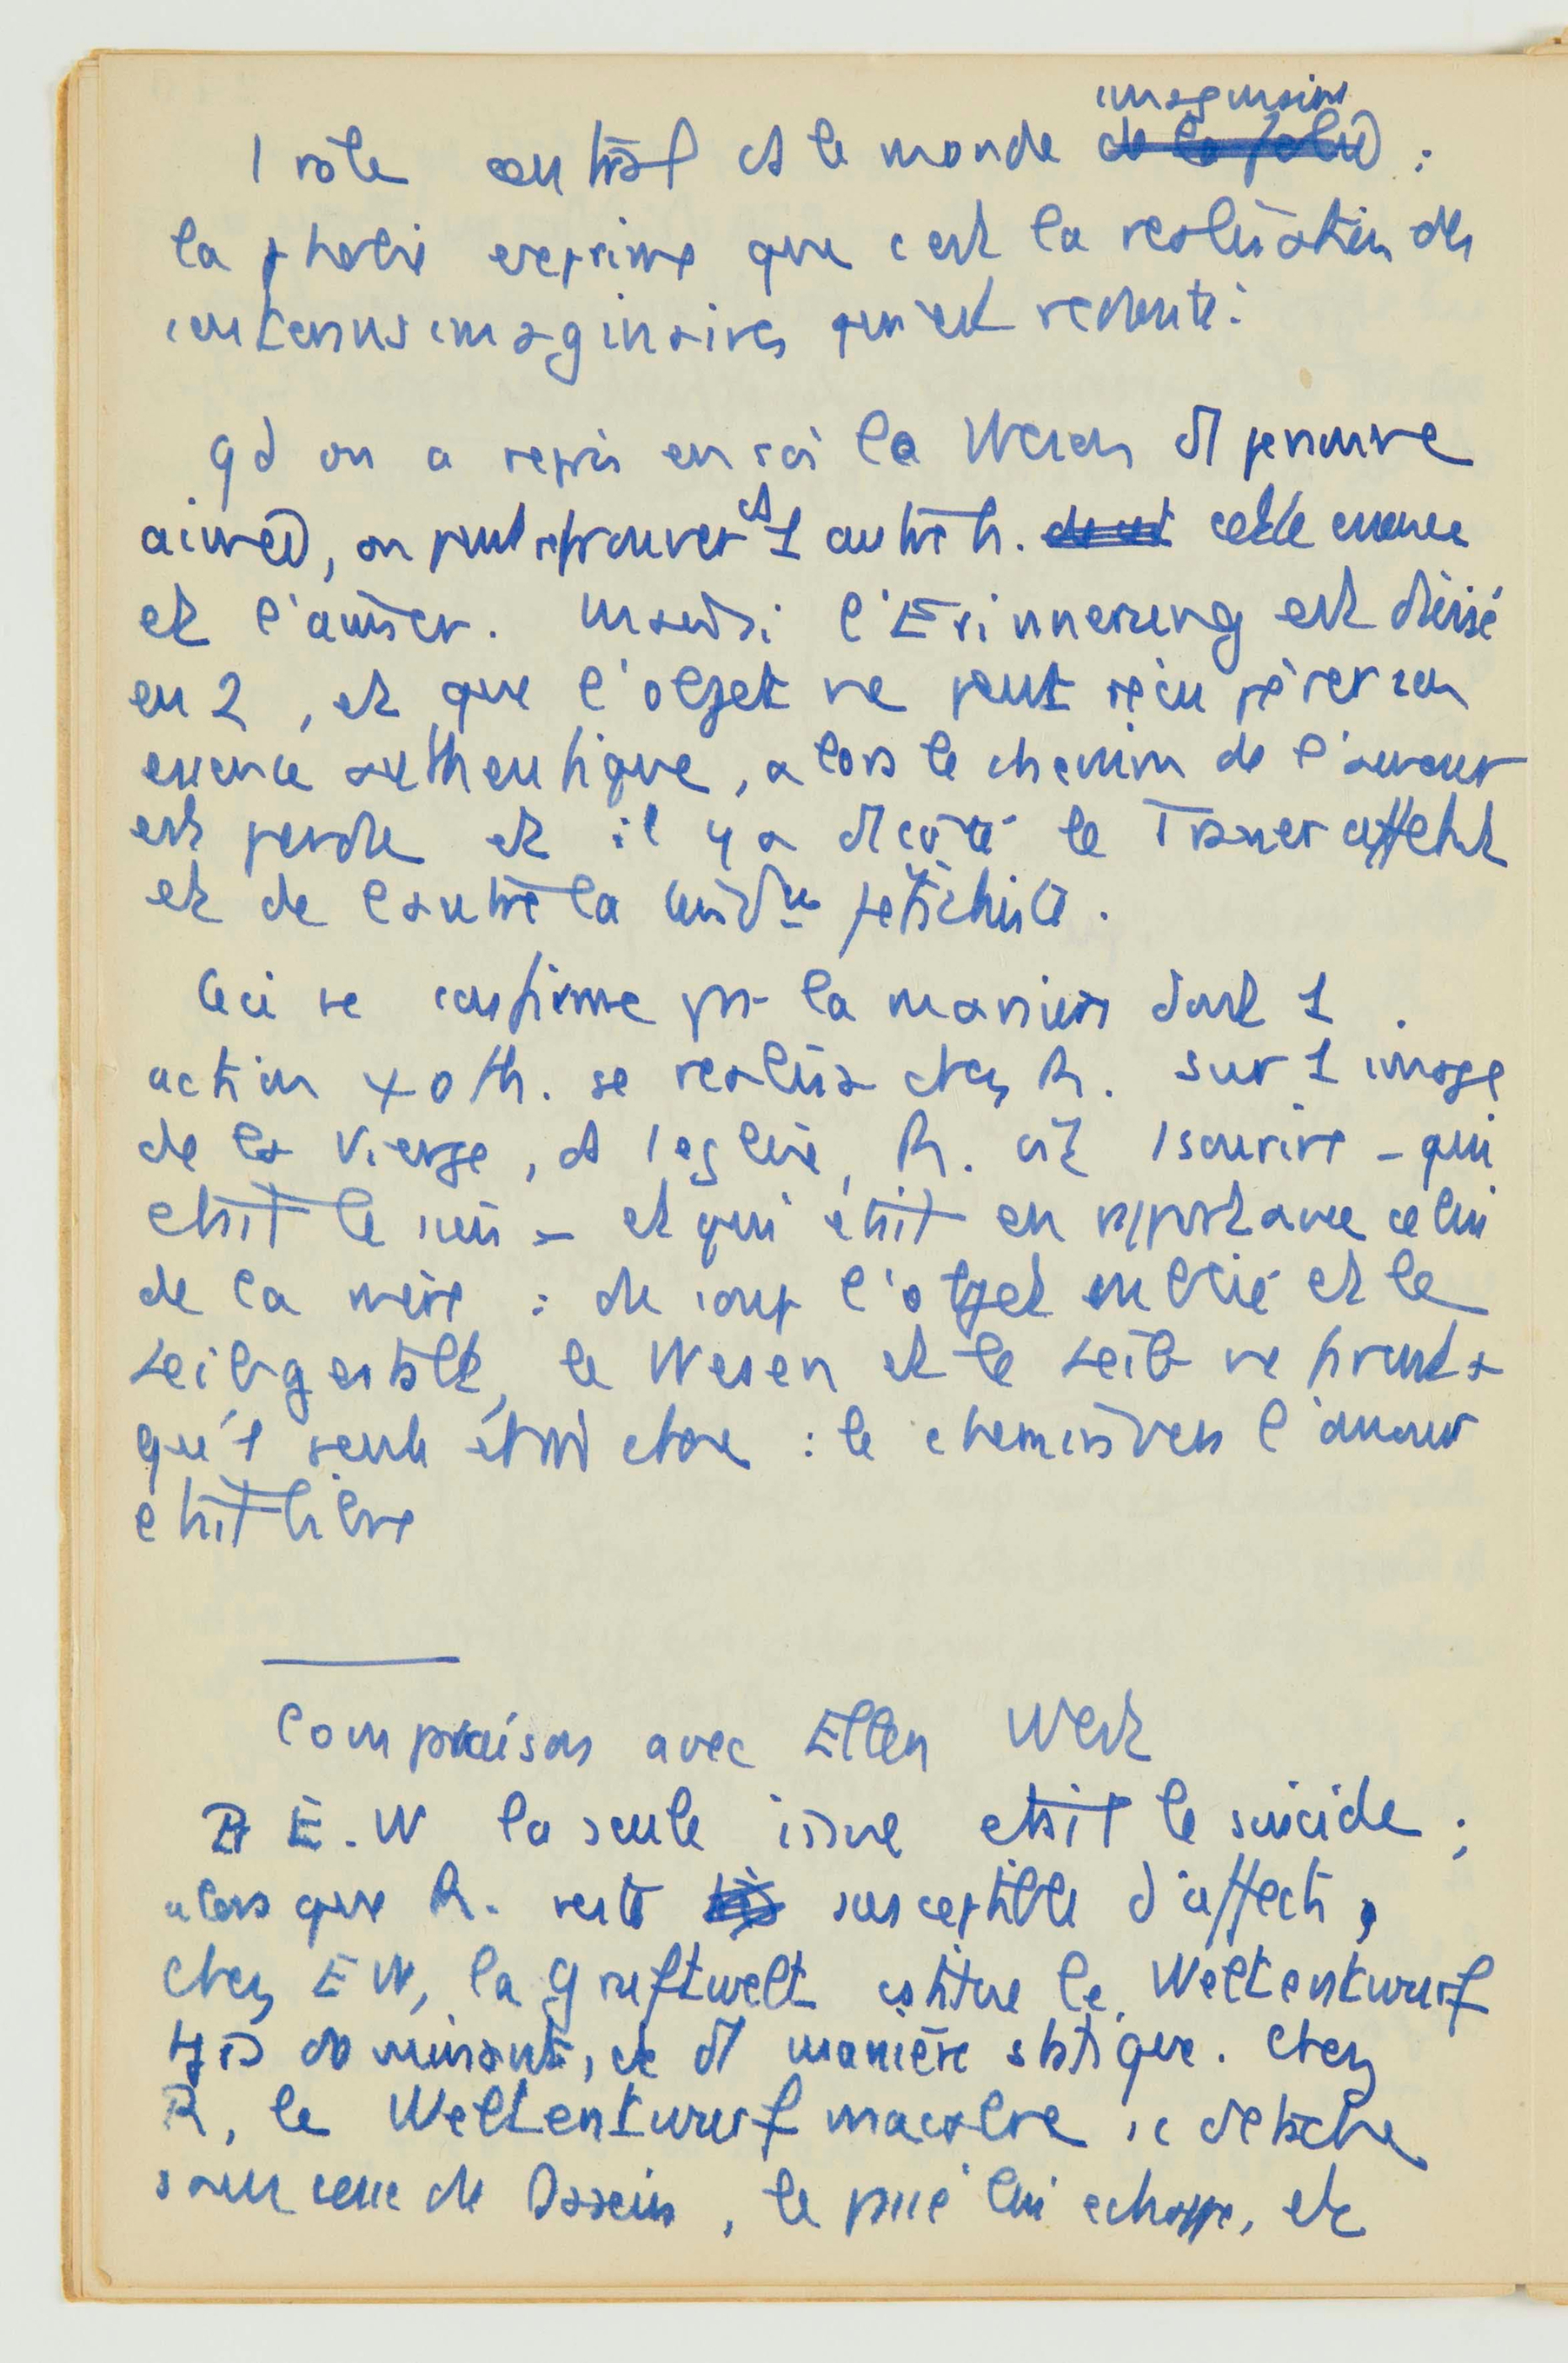 imaginaire
1 rôle central ds le monde de la folie :
la phobie exprime que c'est la realisation des
contenus imaginaires qui est redouté.
qd on a repris en soi le Wesen d'1 personne
aimée, on peut retrouver ds 1 autre h. cette essence
et l'aimer. Mais si l'Erinnerung est divisé
en 2, et que l'objet ne peut récupérer son
essence authentique, alors le chemin de l'amour
est perdu et il y a d'1 côté le Traueraffekt
et de l'autre la fétichiste.
Ceci se confirme par la manière dont 1
action ψoth. se realisa chez R. Sur 1 image
de la Vierge, ds 1 eglise, R. vit 1 sourire - qui
etait le sien - et qui était en rapport avec celui
de la mère : du coup l'objet oublié et le
Leibgestalt, le Wesen et le Leib ne firent +
qu'1 seule et chose : le chemin vers l'amour
etait libre
Comparaison avec Ellen West
E.W la seule issue etait le suicide ;
alors que R. reste susceptible d'affects,
chez EW, la Gruftwelt constitue le Weltentwurf
tjs dominant, et d'1 manière statique. Chez
R, le Weltentwurf macabre se detache
sans cesse du Dasein, le passé lui echappe, et